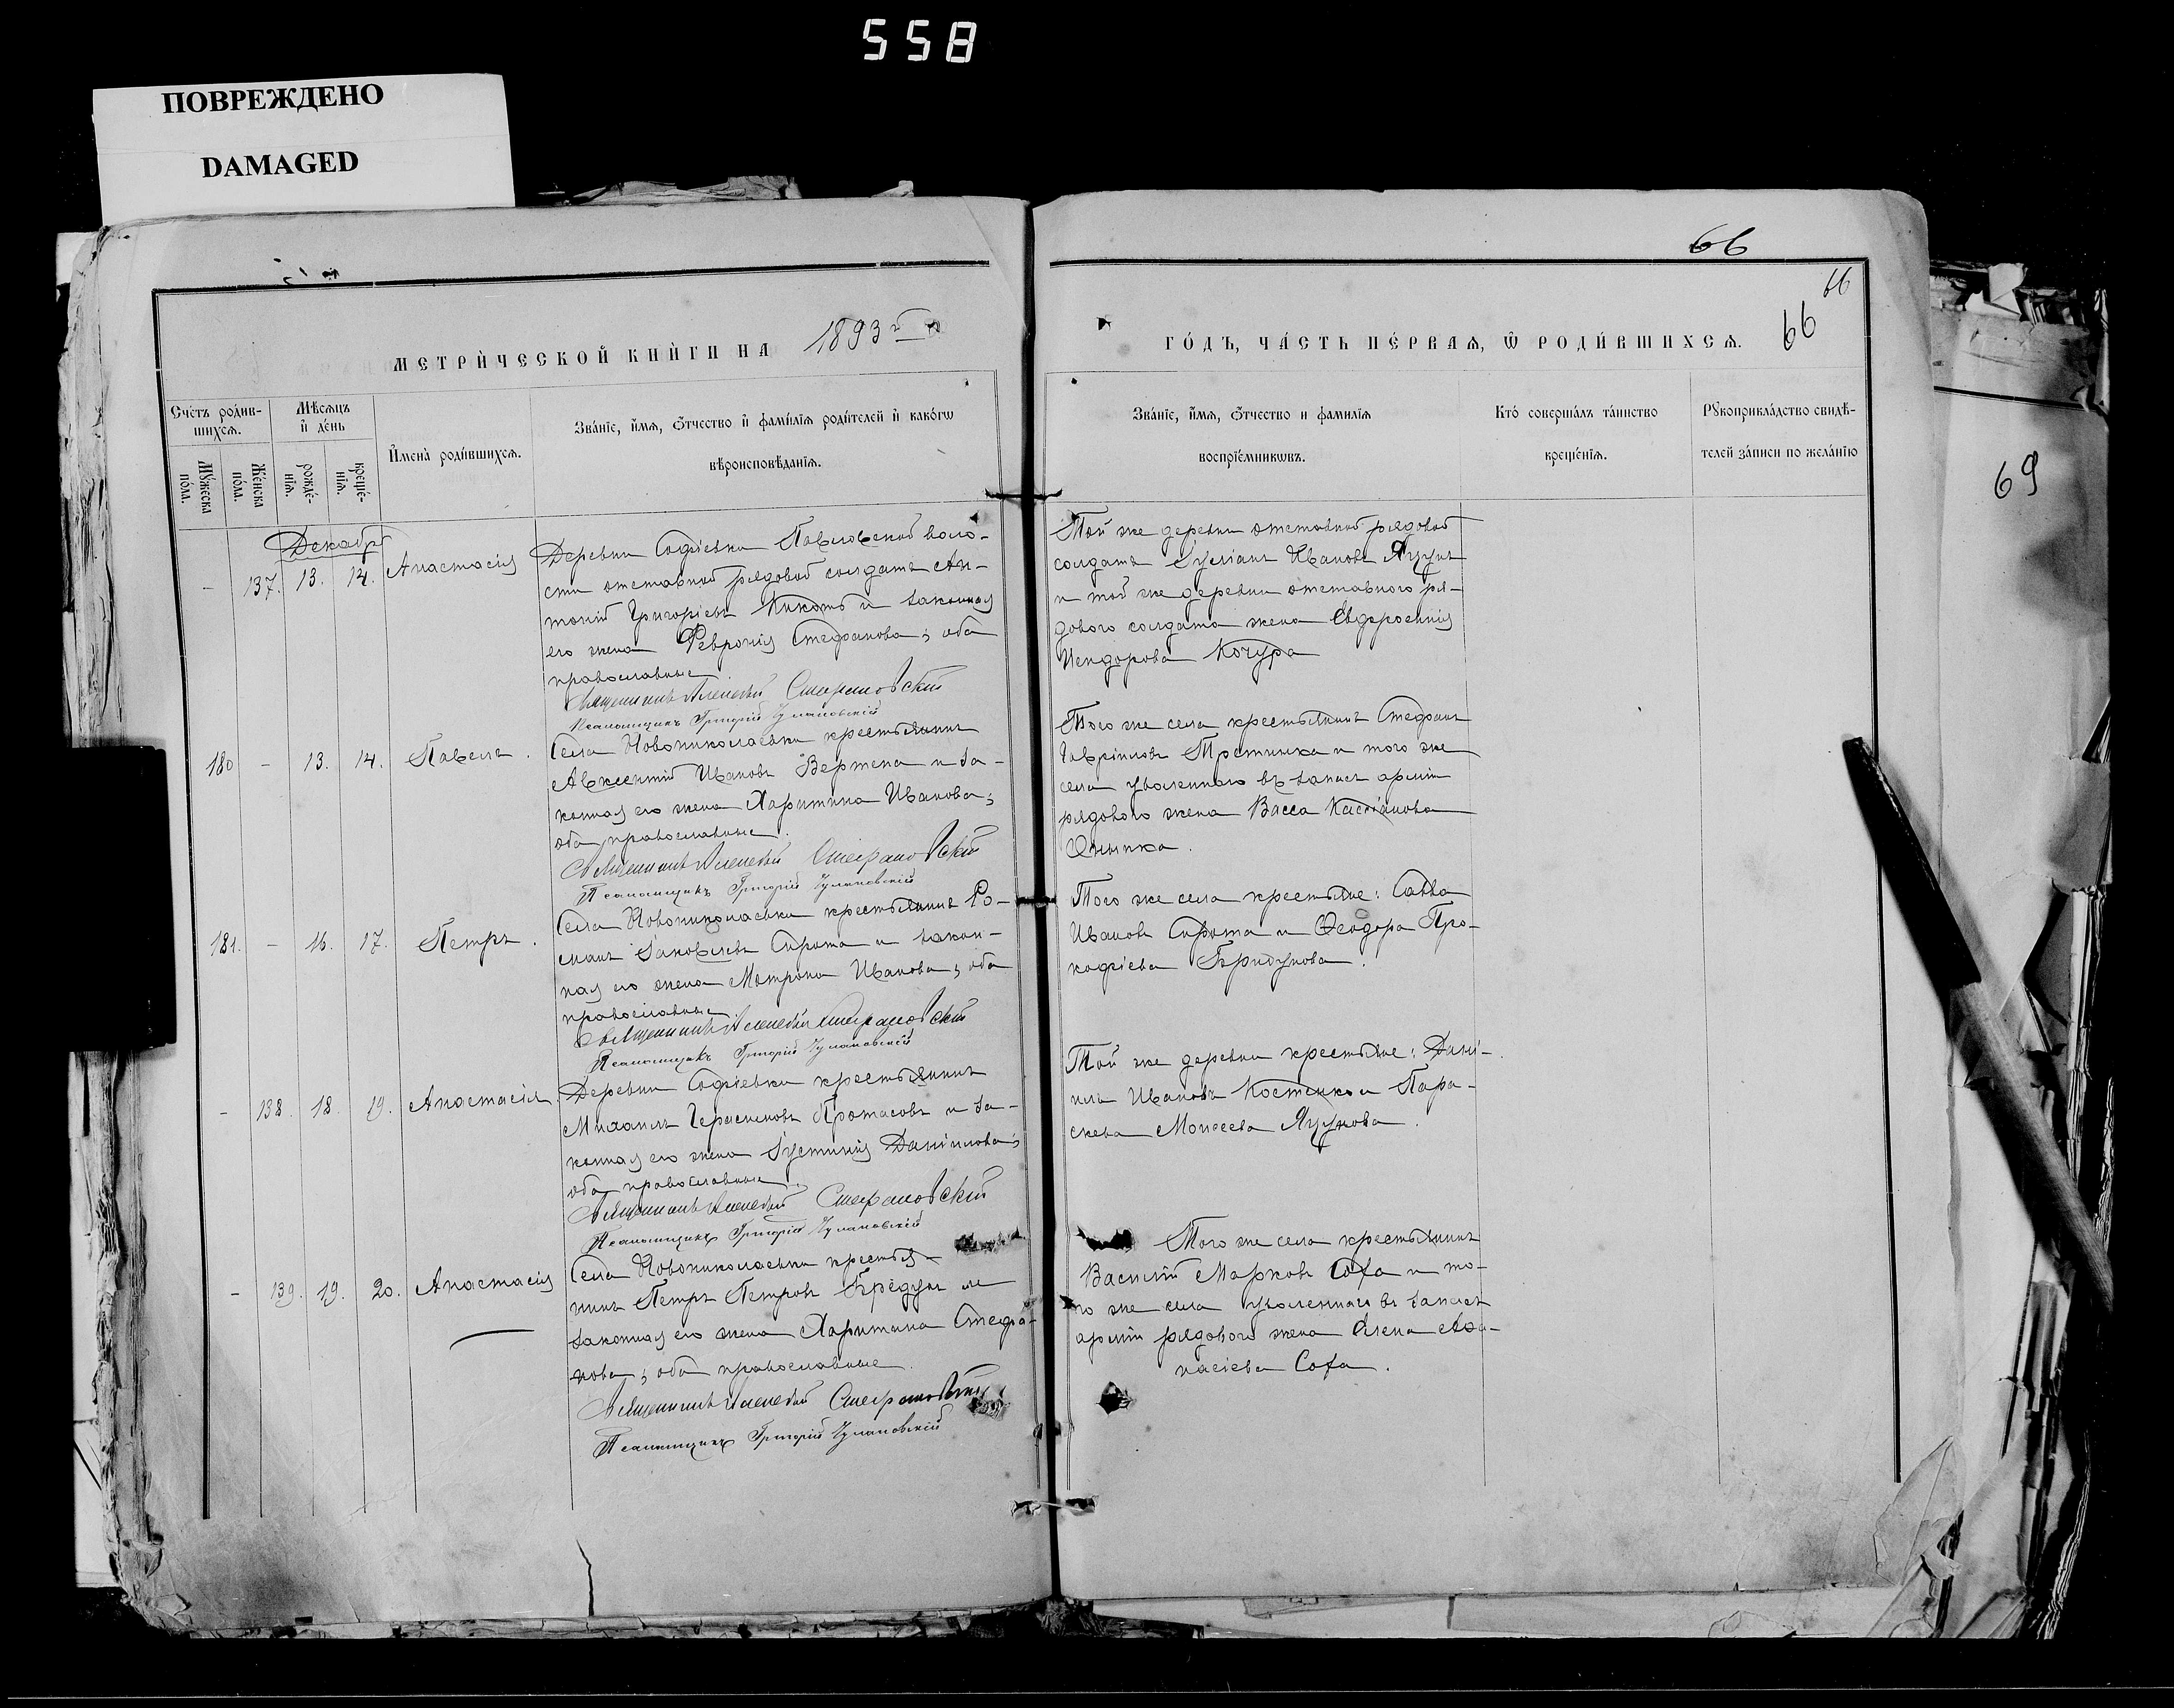 558
ПОВРЕЖДЕНО
DAMAGED
66
66
66
69
МЕТРИ́ЧЕСКОЙ КНИ́ГИ НА 1893 й
ГО́ДЪ, ЧА́СТЬ ПЕ́РВАѦ, Ѿ РОДИ́ВШИХСѦ.
Сче́тъ роди́в-
шихсѧ.
Мѣ́сѧцъ
и҆ де́нь
И҆мена̀ роди́вшихсѧ.
Зва́нїе, и҆́мѧ, ѻ҆́тчество и҆ фами́лїѧ роди́телей и҆ како́гѡ
вѣроисповѣ́данїѧ.
Мꙋ́жеска
по́ла.
Же́нска
по́ла.
рожде́-
нїѧ.
креще́-
нїѧ.
Зва́нїе, и҆́мѧ, ѻ҆́тчество и фамилїѧ
воспрїе́мникѡвъ.
Кто́ соверша́лъ та́инство
креще́нїѧ.
Рꙋкоприкла́дство свидѣ́-
телей за́писи по жела́нїю
Декабр
- 137. 13. 14. Анастасія
Деревни Софіевки Павловской воло-
сти отставной рядовой солдатъ Ан-
тоній Григоріевъ Кикоть и законная
его жена Феронія Стефанова; оба
православные.
Священникъ Алексѣй Стефановскій
Псаломщикъ Григорій Чулановскій
Той же деревни отставной рядовой
солдатъ Іуліанъ Ивановъ Ягунъ
и той же деревни отставного ря-
дового солдата жена Евфросинія
Исидорова Кочура
180 - 13. 14. Павелъ.
Села Новониколаевки крестьянинъ
Авксентій Ивановъ Вертепа и за-
конная его жена Харитина Иванова;
оба православные.
Священникъ Алексѣй Стефановскій
Псаломщикъ Григорій Чулановскій
Того же села крестьянинъ Стефанъ
Гавріиловъ Тростинка и того же
села уволеннаго въ запасъ арміи
рядового жена Васса Кассіанова
181. - 16. 17. Петръ.
Села Новониколаевки крестьянинъ Ро-
манъ Іаковлевъ Сирота и закон-
ная его жена Матрона Иванова; оба
православные.
Священникъ Алексѣй Стефановскій
Псаломщикъ Григорій Чулановскій
Того же села крестьяне: Савва
Ивановъ Сирота и Ѳеодора Про-
кофіева Бридунова.
- 138. 18. 19. Анастасія.
Деревни Софіевки крестьянинъ
Михаилъ Герасимовъ Протасовъ и за-
конная его жена Іустинія Даніилова;
оба православные.
Священникъ Алексѣй Стефановскій
Псаломщикъ Григорій Чулановскій
Той же деревни крестьяне: Дані-
илъ Ивановъ Костенко и Пара-
скева Моисеева Ягунова.
- 139. 19. 20. Анастасія
Села Новониколаевки крестья-
нинъ Петръ Петровъ Бредунъ и
законная его жена Харитина Стефа-
нова; оба православные.
Священникъ Алексѣй Стефановскій
Псаломщикъ Григорій Чулановскій
Того же села крестьянинъ
Василій Марковъ Соха и то-
го же села уволеннаго въ запасъ
арміи рядового жена Елена Аѳа-
насіева Соха.